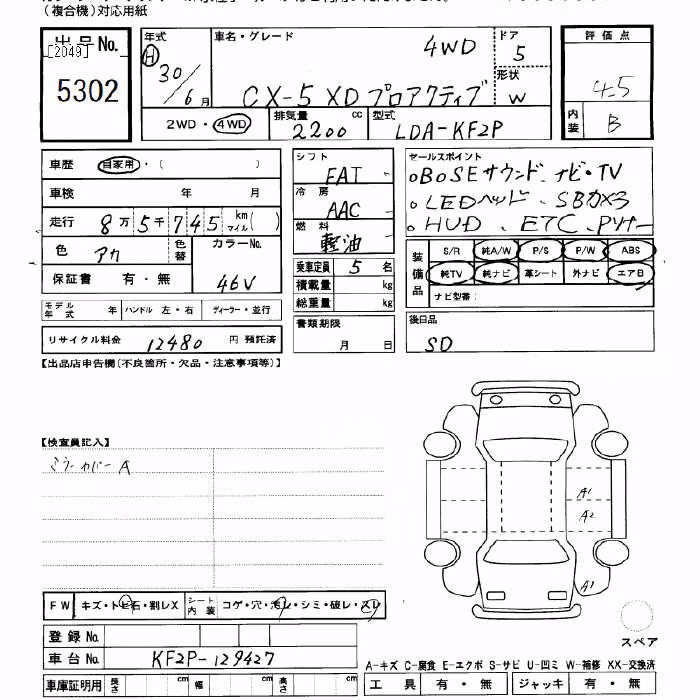 （複合機）対応用紙
出品No.
[2049]
5302
年式
H 30／6月
車名・グレード
4WD
CX-5 XD プロアクティブ
ドア
5
形状
W
2WD・4WD
排気量
2200 cc
型式
LDA-KF2P
評価点
4.5
内装
B
車歴 自家用・( )
車検 年 月
走行 8万5千745 km マイル( )
色 アカ
色替
カラーNo.
46V
保証書 有・無
モデル年式 年
ハンドル 左・右
ディーラー・並行
リサイクル料金 12480 円 預託済
シフト
FAT
冷房
AAC
燃料
軽油
乗車定員 5 名
積載量 kg
総重量 kg
書類期限
月 日
セールスポイント
○BOSEサウンド、ナビ・TV
○LEDヘッド、SBカメラ
○HUD、ETC、
装備品
S/R 純A/W P/S P/W ABS
純TV 純ナビ 革シート 外ナビ エアB
ナビ型番：
後日品
SD
【出品店申告欄(不良箇所・欠品・注意事項等)】
【検査員記入】
ミラーカバー A
A1
A2
A1
FW キズ・トビ石・割レX
シート内装 コゲ・穴・汚レ・シミ・破レ・スレ
登録No.
車台No. KF2P-129427
車庫証明用 長さ cm 幅 cm 高さ cm
スペア
A-キズ C-腐食 E-エクボ S-サビ U-凹ミ W-補修 XX-交換済
工具 有・無 ジャッキ 有・無